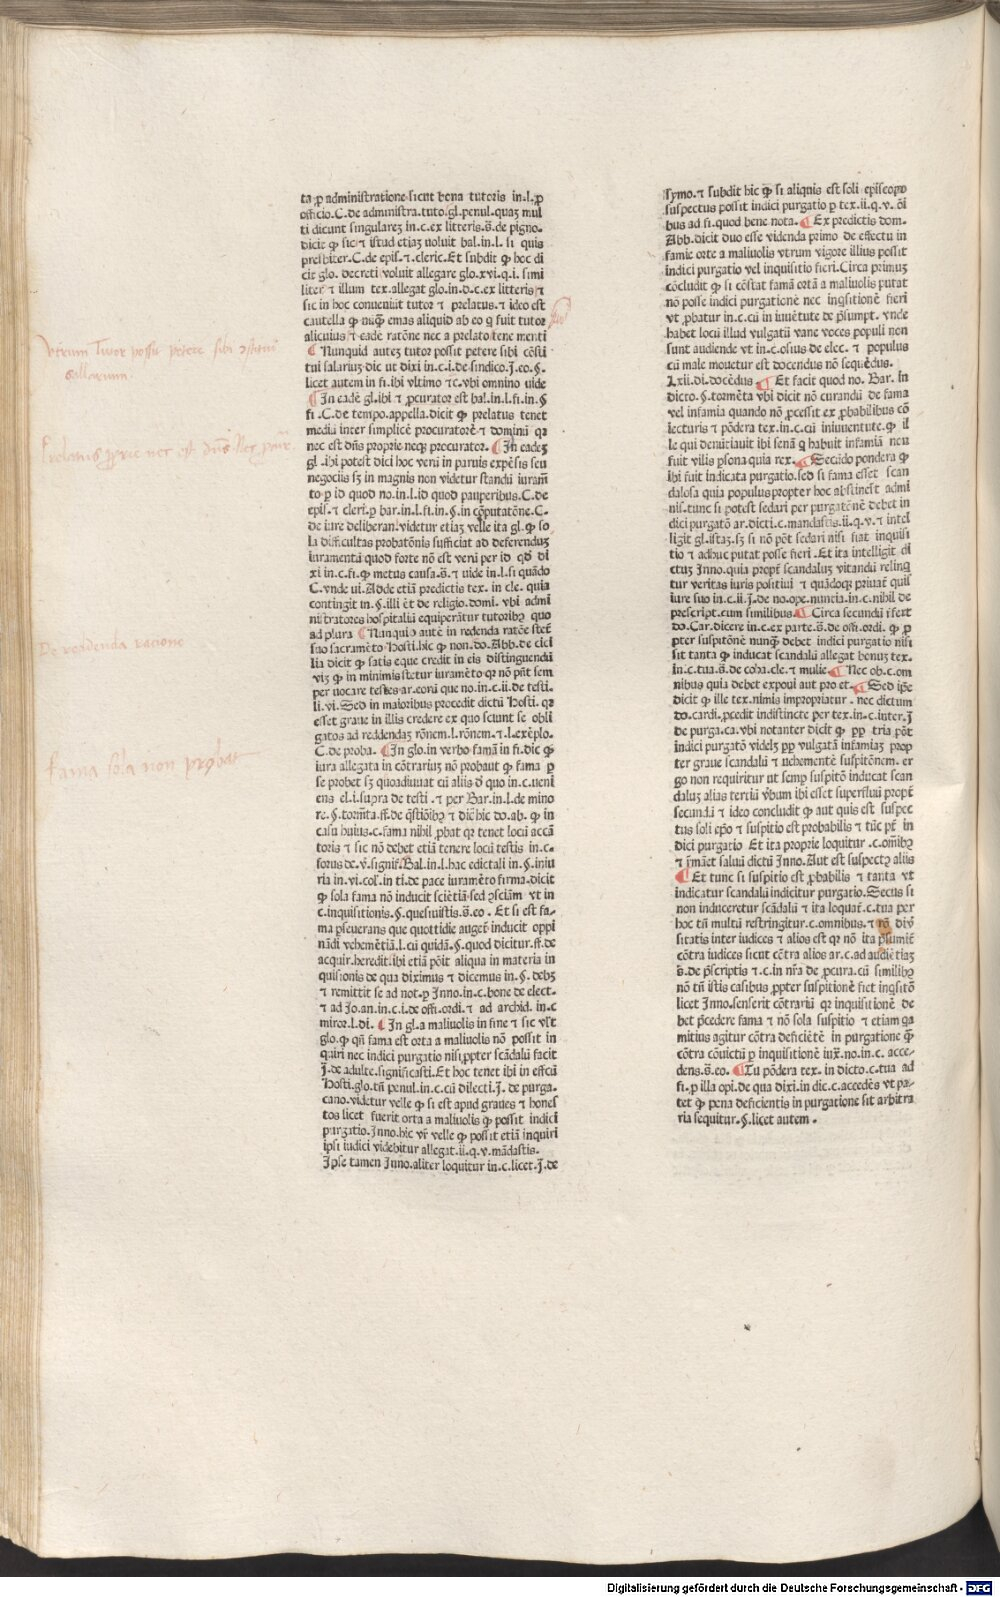 ta ꝓ administratione sicut bena tutoris in.l.ꝓ
officio.C.de administra.tuto.gl.penul.quaꝫ mul
ti dicunt singulareꝫ in.c.ex litteris.s̄.de pigno.
dicit ꝙ sic ⁊ istud etiaꝫ voluit bal.in.l. si quis
presbiter.C.de epis.⁊.cleric.Et subdit ꝙ hoc di
cit glo. decreti voluit allegare glo.xvi.q.i. simi
liter ⁊ illum tex.allegat glo.in.d.c.ex litteris ⁊
sic in hoc conveniūt tutor ⁊ prelatus.⁊ ideo est
cautella ꝙ nūꝙ emas aliquid ab eo q fuit tutor
alicuius ⁊ eadē ratōne nec a prelato tene menti
¶ Nunquid auteꝫ tutor possit petere sibi cōsti
tui salariuꝫ dic ut dixi in.c.i.de sindico.J̄.eo.§.
licet autem in fi.ibi vltimo ⁊c.vbi omnino vide
¶ In eadē gl.ibi ⁊ ꝓcurator est bal.in.l.fi.in.§
fi .C.de tempo.appella.dicit ꝙ prelatus tenet
mediū inter simplicē procuratorē ⁊ dominū qꝛ
nec est dn̄s proprie neqꝫ procurator. ¶ In eadeꝫ
gl .ibi potest dici hoc verū in paruis expēsis seu
negociis sꝫ in magnis non videtur standū iuram̄
to ꝑ id quod no.in.l.id quod pauperibus.C.de
epis.⁊ cleri.ꝑ bar.in.l.fi.in.§.in cōputatōne.C.
de iure deliberan.videtur etiaꝫ velle ita gl.ꝙ so
la difficultas probatōnis sufficiat ad deferenduꝫ
iuramentū quod forte nō est verū per id qd̄ di
xi in.c.fi.ꝙ metus causa.s̄.⁊ vide in.l.si quādo
C.vnde vi.Adde etiā predictis tex. in cle. quia
contingit in.§.illi ēt de religio.domi. vbi admi
nistratores hospitaliū equiperātur tutoribꝫ quo
ad plura ¶ Nunquid autē in reddenda ratōe stet̄
suo sacramēto Hosti.hic ꝙ non.do.Abb.de cici
lia dicit ꝙ satis eque credit in eis distinguendū
viꝫ ꝙ in minimis stetur iuramēto qꝛ nō pn̄t sem
per uocare testes ar.eorū que no.in.c.ii.de testi.
li.vi.Sed in maioribus procedit dictū Hosti. qꝛ
esset graue in illis credere ex quo sciunt se obli
gatos ad reddendaꝫ rōnem.l.rōnem.⁊.l.exēplo.
C.de proba. ¶ In glo.in verbo famā in fi.dic ꝙ
iura allegata in cōtrariuꝫ nō probant ꝙ fama ꝑ
se probet sꝫ quoadiuuat cū aliis d̄ quo in c.veni
ens el.i.supra de testi .⁊ per Bar.in.l.de mino
re.§.torm̄ta.ff.de q̄stiōibꝫ ⁊ dic̄ hic do.ab. ꝙ in
casu huius.c.fama nihil ꝓbat qꝛ tenet locū accu
toris ⁊ sic nō debet etiā tenere locū testis in.c.
forus de.v̄.signif̄.Bal.in.l.hac edictali in.§.iniu
ria in.vi.col̄.in ti.de pace iuramēto firma.dicit
ꝙ sola fama nō inducit sciētiā sed ꝯsciam̄ vt in
c.inquisitionis.§.quesiuistis.s̄.eo . Et si est fa-
ma ꝑseuerans que quottidie auget̄ inducit oppi
nādi vehemētiā.l.cū quidā.§.quod dicitur.ff.de
acquir.heredit.ibi etiā pōit aliqua in materia in
quisionis de qua diximus ⁊ dicemus in.§. debꝫ
⁊ remittit se ad not.ꝑ Inno.in.c.bone de elect.
⁊ ad Jo.an.in.c.i.de offi.ordi.⁊ ad archid. in.c
miror.l.di. ¶ In gl.a maliuolis in fine ⁊ sic vl̄t
glo.ꝙ qn̄ fama est orta a maliuolis nō possit in
quiri nec indici purgatio nisi ꝓpter scādalū facit
J̄.de adulte.significasti.Et hoc tenet ibi in effcū
Hosti.glo.tn̄ penul.in.c.cū dilecti.J̄. de purga.
cano.videtur velle ꝙ si est apud graues ⁊ hones
tos licet fuerit orta a maliuolis ꝙ possit indici
purgatio.Inno.hic vr̄ velle ꝙ possit etiā inquiri
ipsi iudici videbitur allegat.ii.q.v.mādastis.
Ipse tamen Inno.aliter loquitur in.c.licet.J̄.de
symo.⁊ subdit hic ꝙ si aliquis est soli episcopo
suspectus possit indici purgatio ꝑ tex.ii.q.v. oī
bus ad fi.quod bene nota. ¶ Ex predictis dom.
Abb.dicit duo esse videnda primo de effectu in
famie orte a maliuolis vtrum vigore illius possit
indici purgatio vel inquisitio fieri.Circa primuꝫ
cōcludit ꝙ si cōstat famā ortā a maliuolis putat
nō posse indici purgationē nec inq̄sitionē fieri
vt ꝓbatur in.c.cū in iuuētute de p̄sumpt. vnde
habet locū illud vulgatū vane voces populi non
sunt audiende vt in.c.osius de elec. ⁊ populus
cū male mouetur est docendus nō sequēdus.
lxii.di.docēdus. ¶ Et facit quod no. Bar. in
dicto.§.tormēta vbi dicit nō curandū de fama
vel infamia quando nō ꝓcessit ex ꝓbabilibus cō
iecturis ⁊ pōdera tex.in.c.cū iniuuentute.ꝙ il
le qui denūciauit ibi senā q habuit infamiā non
fuit vilis ꝑsona quia rex. ¶ Secūdo pondera ꝙ
ibi fuit indicata purgatio.sed si fama esset scan
dalosa quia populus propter hoc abstinest admi
nis.tunc si potest sedari per purgatōnē debet in
dici purgatō ar.dicti.c.mandastis.ii.q.v.⁊ intel
ligit gl.istaꝫ.sꝫ si nō pōt sedari nisi fiat inquisi
tio ⁊ adhuc putat posse fieri .Et ita intelligit di
ctuꝫ Inno.quia propt̄ scandaluꝫ vitandū relinq
tur veritas iuris positiui ⁊ quādoqꝫ priuat̄ quis
iure suo in.c.ii.J̄.de no.ope.nuncia.in.c.nihil de
prescript.cum similibus. ¶ Circa secundū r̄fert
do.Car.dicere in.c.ex parte.s̄.de offi.ordi. ꝙ ꝓ
pter suspitōnē nunꝙ debet indici purgatio nisi
sit tanta ꝙ inducat scandalū allegat bonuꝫ tex.
in.c.tua.s̄.de coha.cle.⁊ mulie. ¶ Nec ob.c.om
nibus quia debet exponi aut pro et. ¶ Sed ip̄e
dicit ꝙ ille tex.nimis impropriatur . nec dictum
do.cardi.ꝓcedit indistincte per tex.in.c.inter.J̄
de purga.ca.vbi notanter dicit ꝙ ꝓp tria pōt
indici purgatō videlꝫ ꝓp vulgatā infamiaꝫ prop
ter graue scandalū ⁊ uehementē suspitōnem. er
go non requiritur ut semꝑ suspitō inducat scan
daluꝫ alias tertiū v̄bum ibi esset superfluū propt̄
secundū ⁊ ideo concludit ꝙ aut quis est suspec
tus soli ep̄o ⁊ suspitio est probabilis ⁊ tūc pt̄ in
dici purgatio Et ita proprie loquitur .c.om̄ibꝫ
⁊ r̄manet saluū dictū Inno.Aut est suspectꝫ aliis
¶ Et tunc si suspitio est ꝓbabilis ⁊ tanta vt
indicatur scandalū indicitur purgatio.Secus si
non induceretur scādalū ⁊ ita loquat̄.c.tua per
hoc tn̄ multū restringitur.c.omnibus.⁊ rō div̄
sitatis inter iudices ⁊ alios est qꝛ nō ita p̄sumit̄
cōtra iudices sicut cōtra alios ar.c.ad audiētiaꝫ
s̄.de p̄scriptis ⁊.c.in nr̄a de ꝓcura.cū similibꝫ
nō tn̄ istis casibus ꝓpter suspitionē fiet inq̄sitō
licet Inno.senserit cōtrariū qꝛ inquisitionē de
bet p̄cedere fama ⁊ nō sola suspitio ⁊ etiam qa
mitius agitur cōtra deficiētē in purgatione ꝙ̄
cōtra cōuictū ꝑ inquisitionē iux̄.no.in.c. acce-
dens.s̄.eo. ¶ Tu pōdera tex.in dicto.c.tua ad
fi.ꝑ illa opi.de qua dixi.in dic.c.accedēs vt pa-
tet ꝙ pena deficientis in purgatione sit arbitra
ria sequitur.§.licet autem .
Vtrum Tutor possit petere sibi ꝯstitui
sallarium
Prelatus proprie nec est dn̄s Nec procur̄
De reddenda racione
fama sola non probat
Digitalisierung gefördert durch die Deutsche Forschungsgemeinschaft - DFG